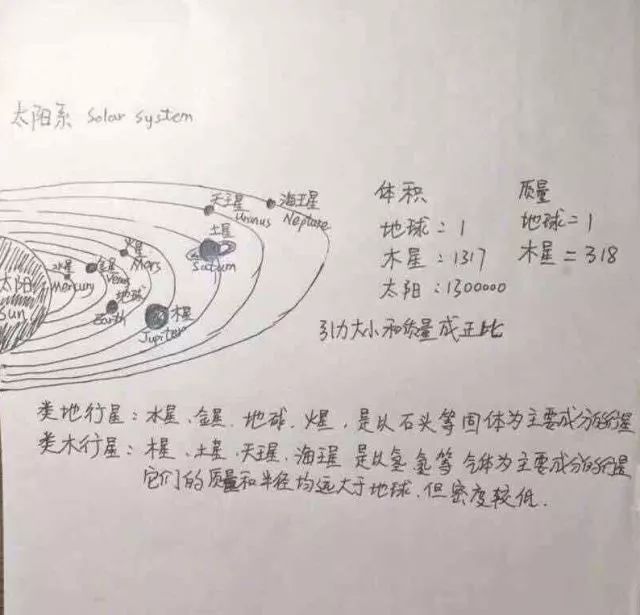 太阳系 Solar System
天王星 Uranus
海王星 Neptune
土星 Saturn
火星 Mars
水星 Mercury
金星 Venus
地球 Earth
木星 Jupiter
太阳 Sun
体积
地球=1
木星:1317
太阳:1300000
质量
地球=1
木星=318
引力大小和质量成正比
类地行星:水星、金星、地球、火星,是以石头等固体为主要成分的行星
类木行星:木星、土星、天王星、海王星 是以氢、氦等气体为主要成分的行星
它们的质量和半径均远大于地球,但密度较低.